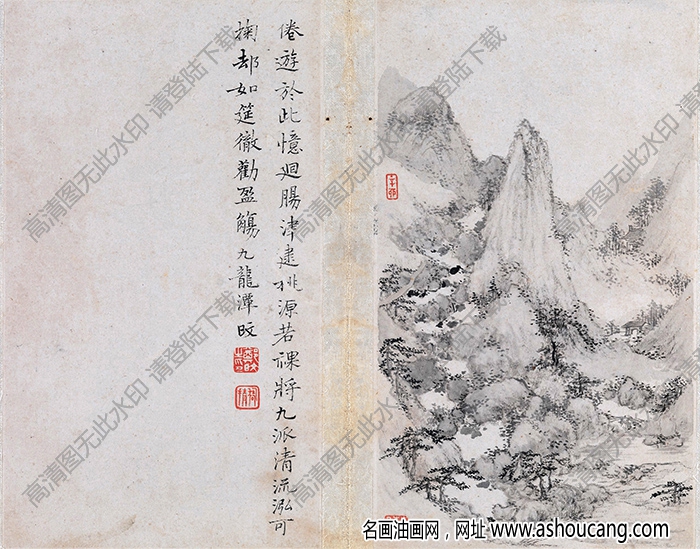 倦遊於此憶迴腸津逮桃源若祼將九派清流泓可
掬却如筵徹勸盈觴九龍潭旼
高清图无此水印 请登陆下载
高清图无此水印 请登陆下载
高清图无此水印
高清图无此水印 请登陆下载
高清图无此水印 请登陆下载
高清图无此水印
名画油画网，网址 www.ashoucang.com